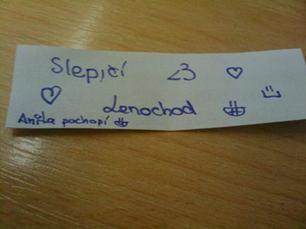 Slepičí <3 ♡
♡ Lenochod
Anička pochopí